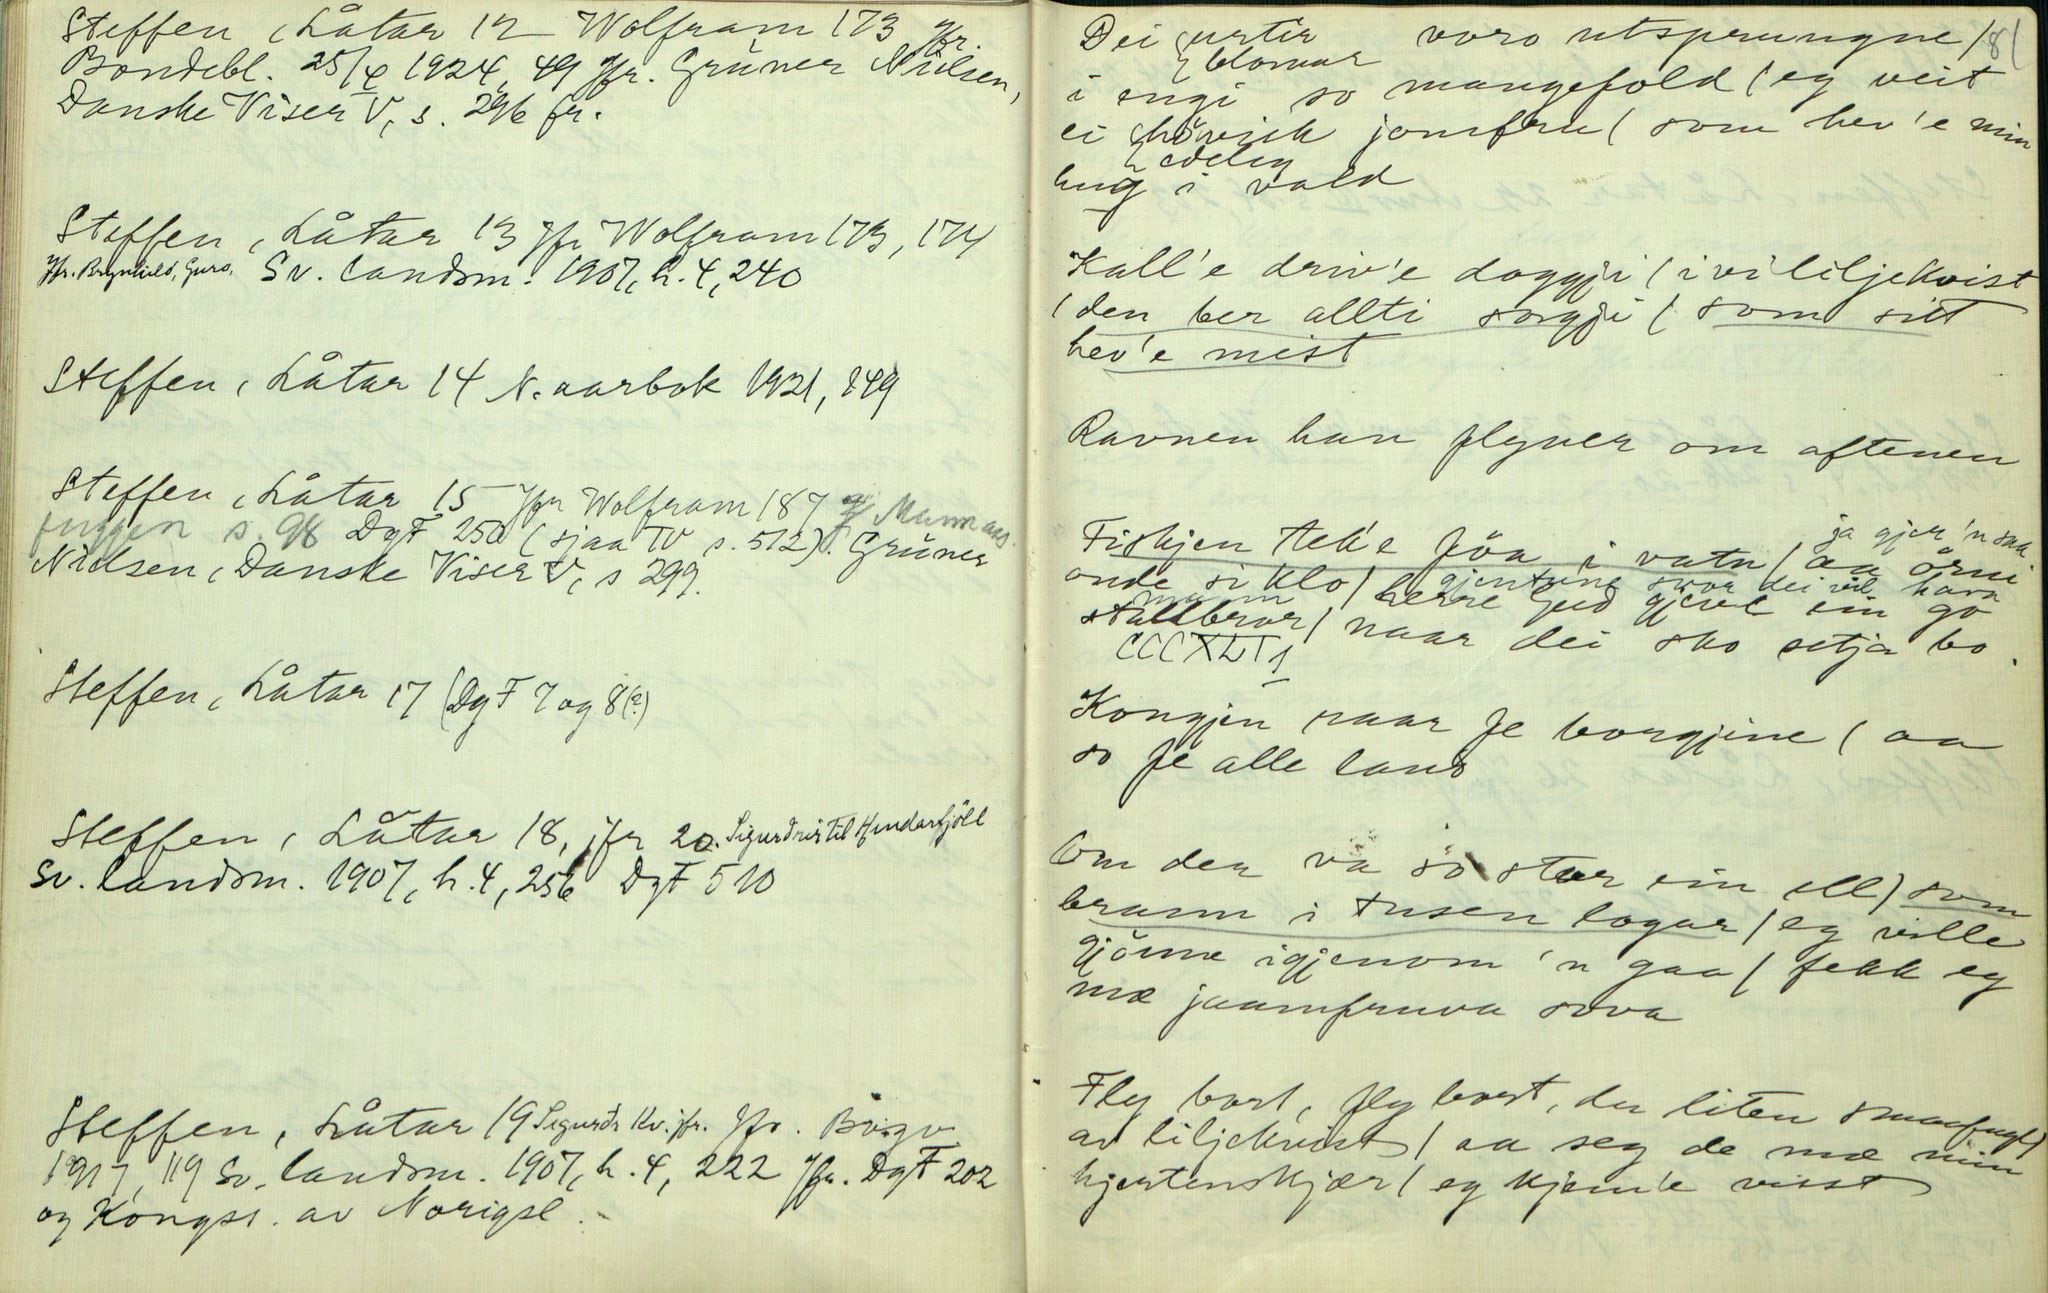 Steffen, Låtar 12 Wolfram 173 jfr.
Bondebl. 25/X 1924, 49 Jfr. Grüner Nielsen,
Danske Viser V, s. 296 fr.
Steffen, Låtar 13 Jfr Wolfram 173, 174
Jfr. Brynhild, Guro. Sv. landsm. 1907, h. 4, 240
Steffen, Låtar 14 N. aarbok 1921, 149
Steffen, Låtar 15 Jfr Wolfram 187
s. 98 DgF 250 (sjaa IV s. 512). Grüner
Nielsen, Danske Viser V, s 299.
Steffen, Låtar 17 (DgF 7 og 8(?)
Steffen, Låtar 18, jfr 20.
Sv. landsm. 1907, h. 4, 256 DgF 510
Steffen, Låtar 19 Sigurds Kv. jfr. Jfr.
1917, 119 Sv. landsm. 1907, h. 4, 222 Jfr. DgF 202
og Kongss. av Norigsl.
181
Dei urtir voro utsprungne /
blomar
i engi so mangefold / eg veit
ei hövisk jomfru / som hev'e min
edeleg
hug i vald
Kall'e driv'e doggji / i vi liljekvist
/ den ber allti sorgji / som sitt
hev'e mist
Ravnen han flyver om aftenen
ja gjer'n saa
Fiskjen tek'e föa i vatn / aa örni
onde si klo / herre Gud gjeve ein go
gjentune svor dei vil hava
mann
stallbror / naar dei sko setja bo.
CCCXLI 1
Kongjen raar fe borgjine / aa
so fe alle land
Om den va so stor ein ell / som
brann i tusen logar / eg ville
gjönne igjenom 'n gaa / fekk eg
mæ jaamfruva sova
Fly bort, fly bort, du liten smaafugl /
av liljekvist / aa seg de mæ min
hjertenskjær / eg kjem'e visst